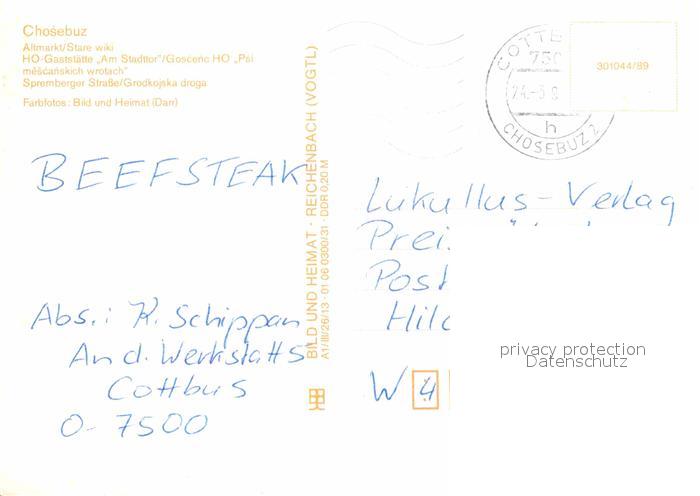 Chośebuz
Altmarkt/Stare wiki
HO-Gaststätte „Am Stadttor"/Gosćeńc HO „Psi
měšćańskich wrotach"
Spremberger Straße/Grodkojska droga
Farbfotos: Bild und Heimat (Darr)
BEEFSTEAK
Abs.: K. Schippan
An d. Werkstatt 5
Cottbus
O-7500
BILD UND HEIMAT · REICHENBACH (VOGTL)
A1/III/26/13 · 01 06 0300/31 · DDR 0,20 M
COTTB
750
24.-3.9
h
CHOSEBUZ 2
301044/89
Lukullus-Verlag
Prei
Post
Hild
W 4
privacy protection
Datenschutz